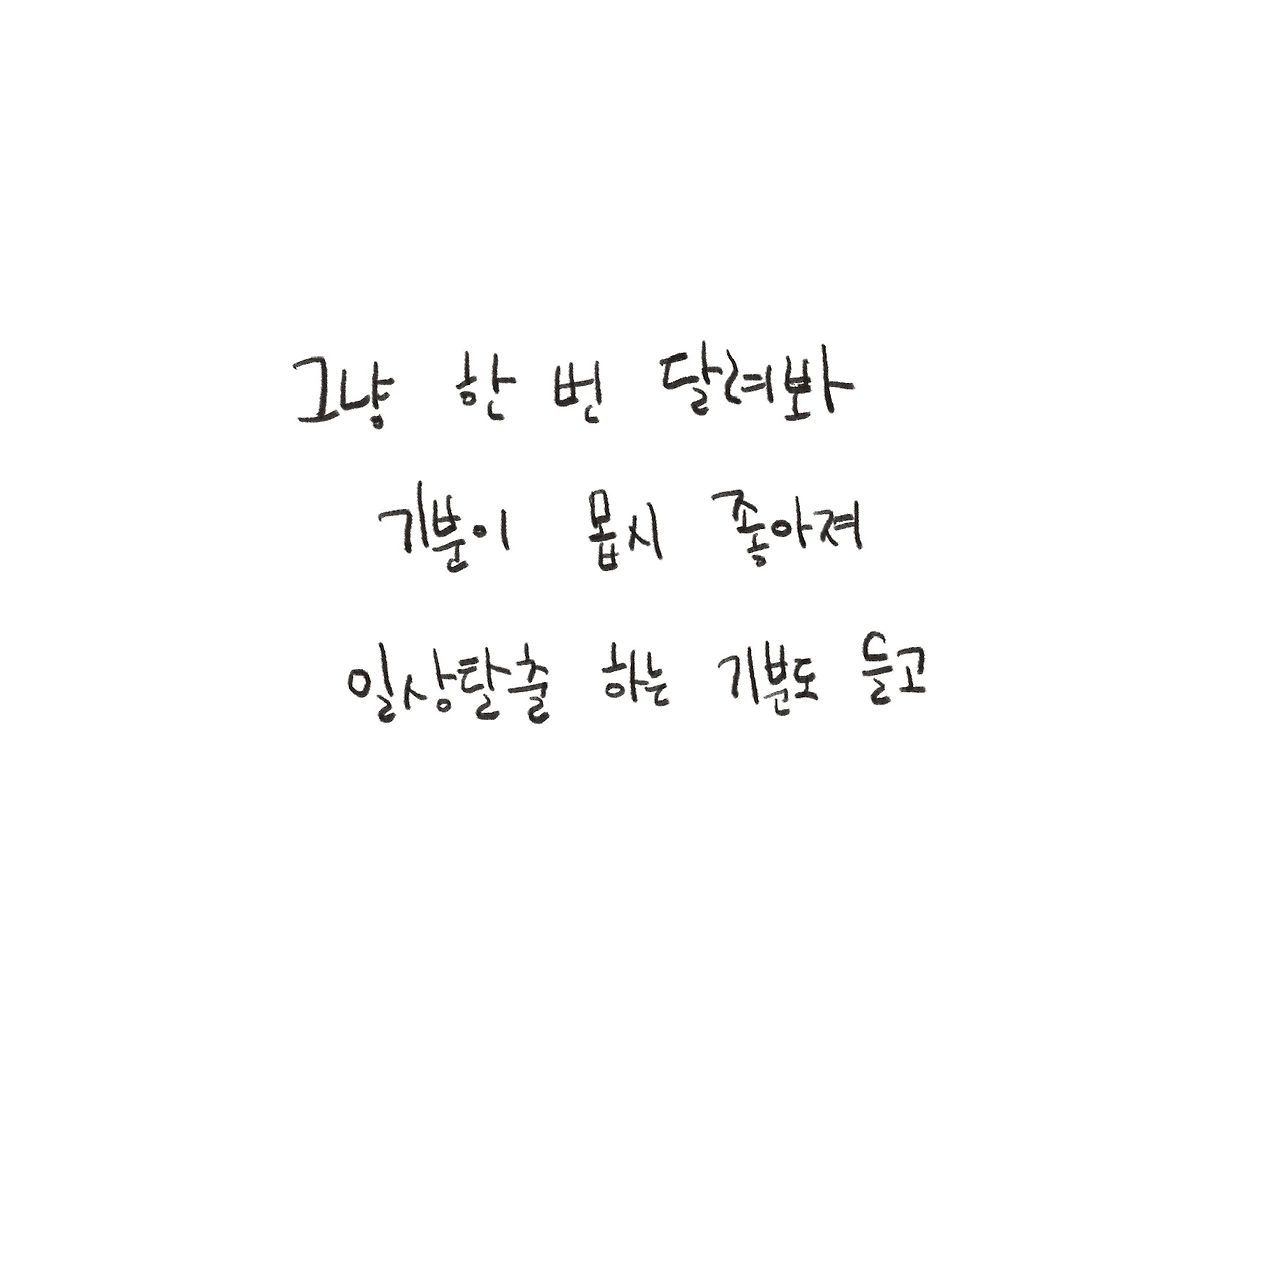 그냥 한 번 달려봐
기분이 몹시 좋아져
일상탈출 하는 기분도 들고